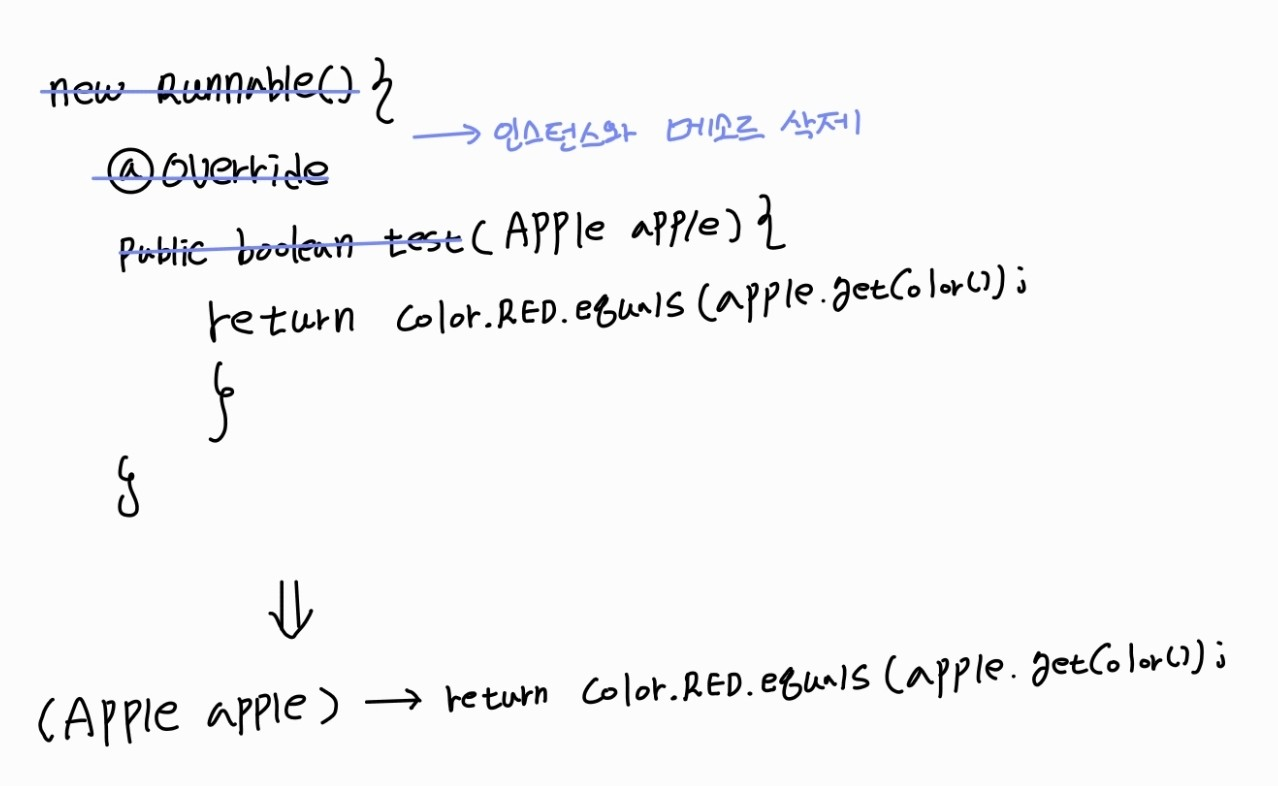 new Runnable() {
→ 인스턴스와 메소르 삭제
@Override
public boolean test(Apple apple) {
return Color.RED.equals(apple.getColor());
}
}
⇓
(Apple apple) → return Color.RED.equals(apple.getColor());